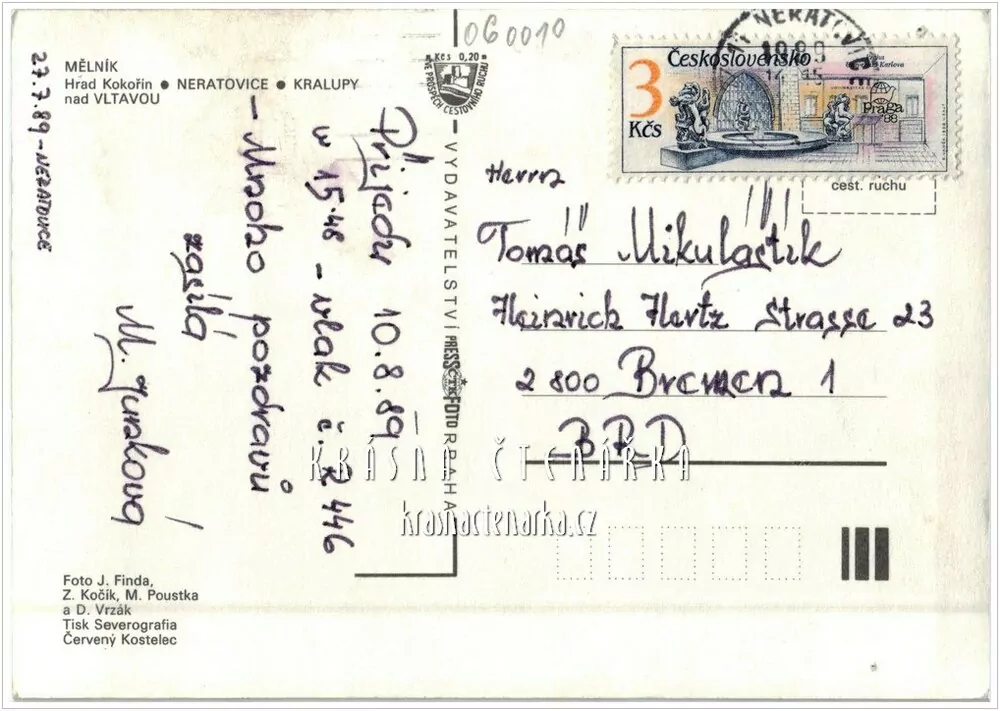 060010
MĚLNÍK
Hrad Kokořín ● NERATOVICE ● KRALUPY
nad VLTAVOU
27.7.89 - NERATOVICE
Přijedu 10.8.89
v 15.48 - vlak č. R 446
- Mnoho pozdravů
zasílá
M. Jirráková
Kčs 0,20
VE PROSPĚCH CESTOVNÍHO RUCHU
VYDAVATELSTVÍ PRESSFOTO PRAHA
ČTK
NERATOVICE
1989
Československo
3
Kčs
Praga
88
cest. ruchu
Herrn
Tomáš Mikuláštík
Heinrich Hertz Strasse 23
2800 Bremen 1
BRD
KRÁSNÁ ČTENÁŘKA
krasnactenarka.cz
Foto J. Finda,
Z. Kočík, M. Poustka
a D. Vrzák
Tisk Severografia
Červený Kostelec